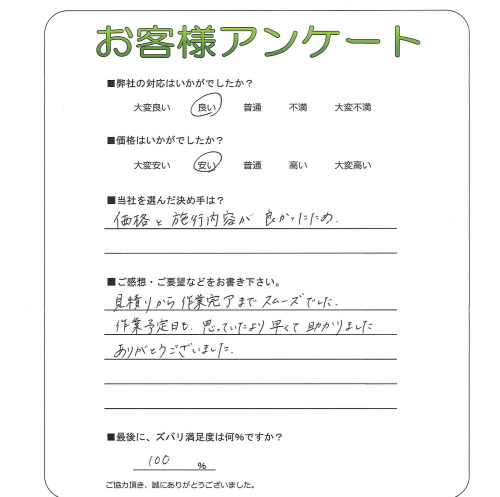 お客様アンケート
■弊社の対応はいかがでしたか？
大変良い 良い 普通 不満 大変不満
■価格はいかがでしたか？
大変安い 安い 普通 高い 大変高い
■当社を選んだ決め手は？
価格と施行内容が良かったため.
■ご感想・ご要望などをお書き下さい。
見積りから作業完了までスムーズでした.
作業予定日も、思っていたより早くて助かりました
ありがとうございました.
■最後に、ズバリ満足度は何％ですか？
100 ％
ご協力頂き、誠にありがとうございました。